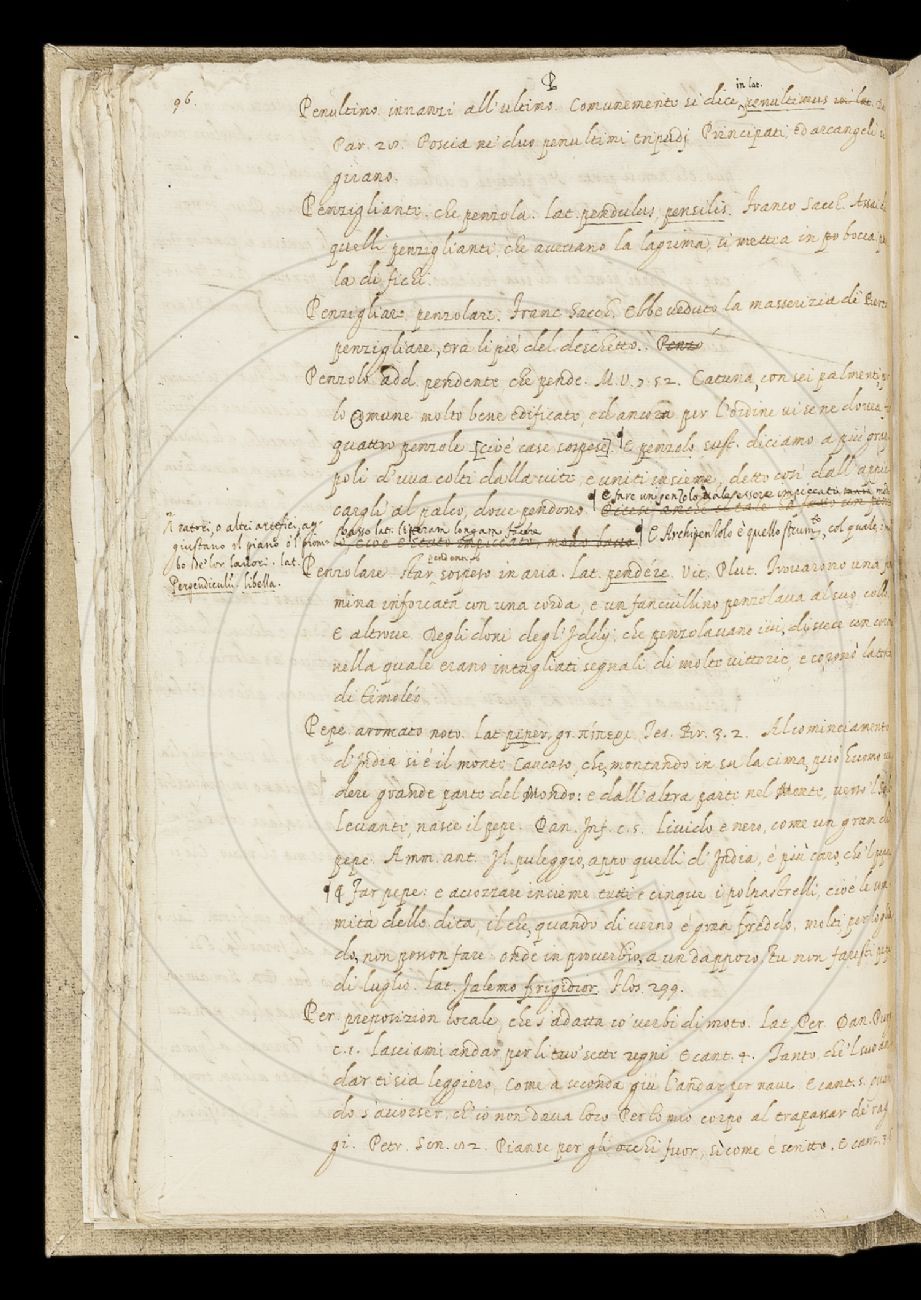 96.
P
in lat.
Penultimo. innanzi all'ultimo. Comunemente si dice penultimus in lat.
Par. 28. Poscia ne' duo penultimi tripudj Principati, ed arcangeli si
girano.
Penzigliante. che penzola. Lat. pendulus, pensilis. Franco Sacch.
quelli penziglianti, che aveuano la lagrima, si mettea in bocca
la di fichi.
Penzigliare, penzolare. Franc. Sacch. Ebbe veduto la masserizia di
penzigliare, tra li piè del deschetto. Penzo
Penzolo. add. pendente che pende. M.V. 3. 52. Catuna, con sei palmenti,
lo Comune molto bene edificato, ed ancora per l'ordine vi se ne dovea
quattro penzole [cioè case sospese]. E penzolo, sust. diciamo a più grap-
poli d'uva colti dalla vite, e uniti insieme, detto così dall'appic-
cargli al palco, dove pendono.
E fare un penzolo, vale essere impiccato
basso. lat. literam longam facere.
E Archipenzolo è quello strumto, col quale, i mu
ratori, o altri artefici, ag-
giustano il piano o'l piom-
bo de' lor lavori. lat.
Perpendiculũ, libella.
Penzolare. star sospeso in aria. Lat. pendére. Vit. Plut. Trovarono una fe
mina inforcata con una corda, e un fanciullino penzolava al suo collo.
E altrove. Degli doni degl'Idely, che penzolavano ivi, disciese un
nella quale erano intagliati segnali di molte vittorie, e coronò la
di Timoléo.
Pepe. aromato noto. Lat. piper, gr. πίπερι. Tes. Br. 3. 2. Al cominciamento
d'India si è il monte Caucaso, che, montando in su la cima, può huomo ve
dere grande parte del Mondo: e dall'altra parte nel Monte, verso'l
Levante, nasce il pepe. Dan. Inf. c. 5. Livido e nero, come un gran di
pepe. Amm. ant. Il puleggio, appo quelli d'India, è più caro, che'l pepe
¶ Far pepe: e accozzare insieme tutti e cinque i polpastrelli, cioè le som
mità delle dita, il che, quando di verno è gran freddo, molti
do, non posson fare: onde in proverbio, a un dappoco, tu non faresti pepe
di luglio. lat. Jalemo frigidior. Flos. 299.
Per. preposizion locale, che s'adatta co' verbi di moto. Lat. Per. Dan. Purg.
c. 1. Lasciami andar per li tuo' sette regni. E cant. 4. Tanto, che'l suo an
dar ti sia leggiero, Come a seconda giù l'andar per nave. E cant. 5. quan
do s'accorser, ch'io non dava loco Per lo mio corpo al trapassar de' rag
gi. Petr. Son. 82. Pianse per gli occhi fuor, sì come è scritto. E canz. 3